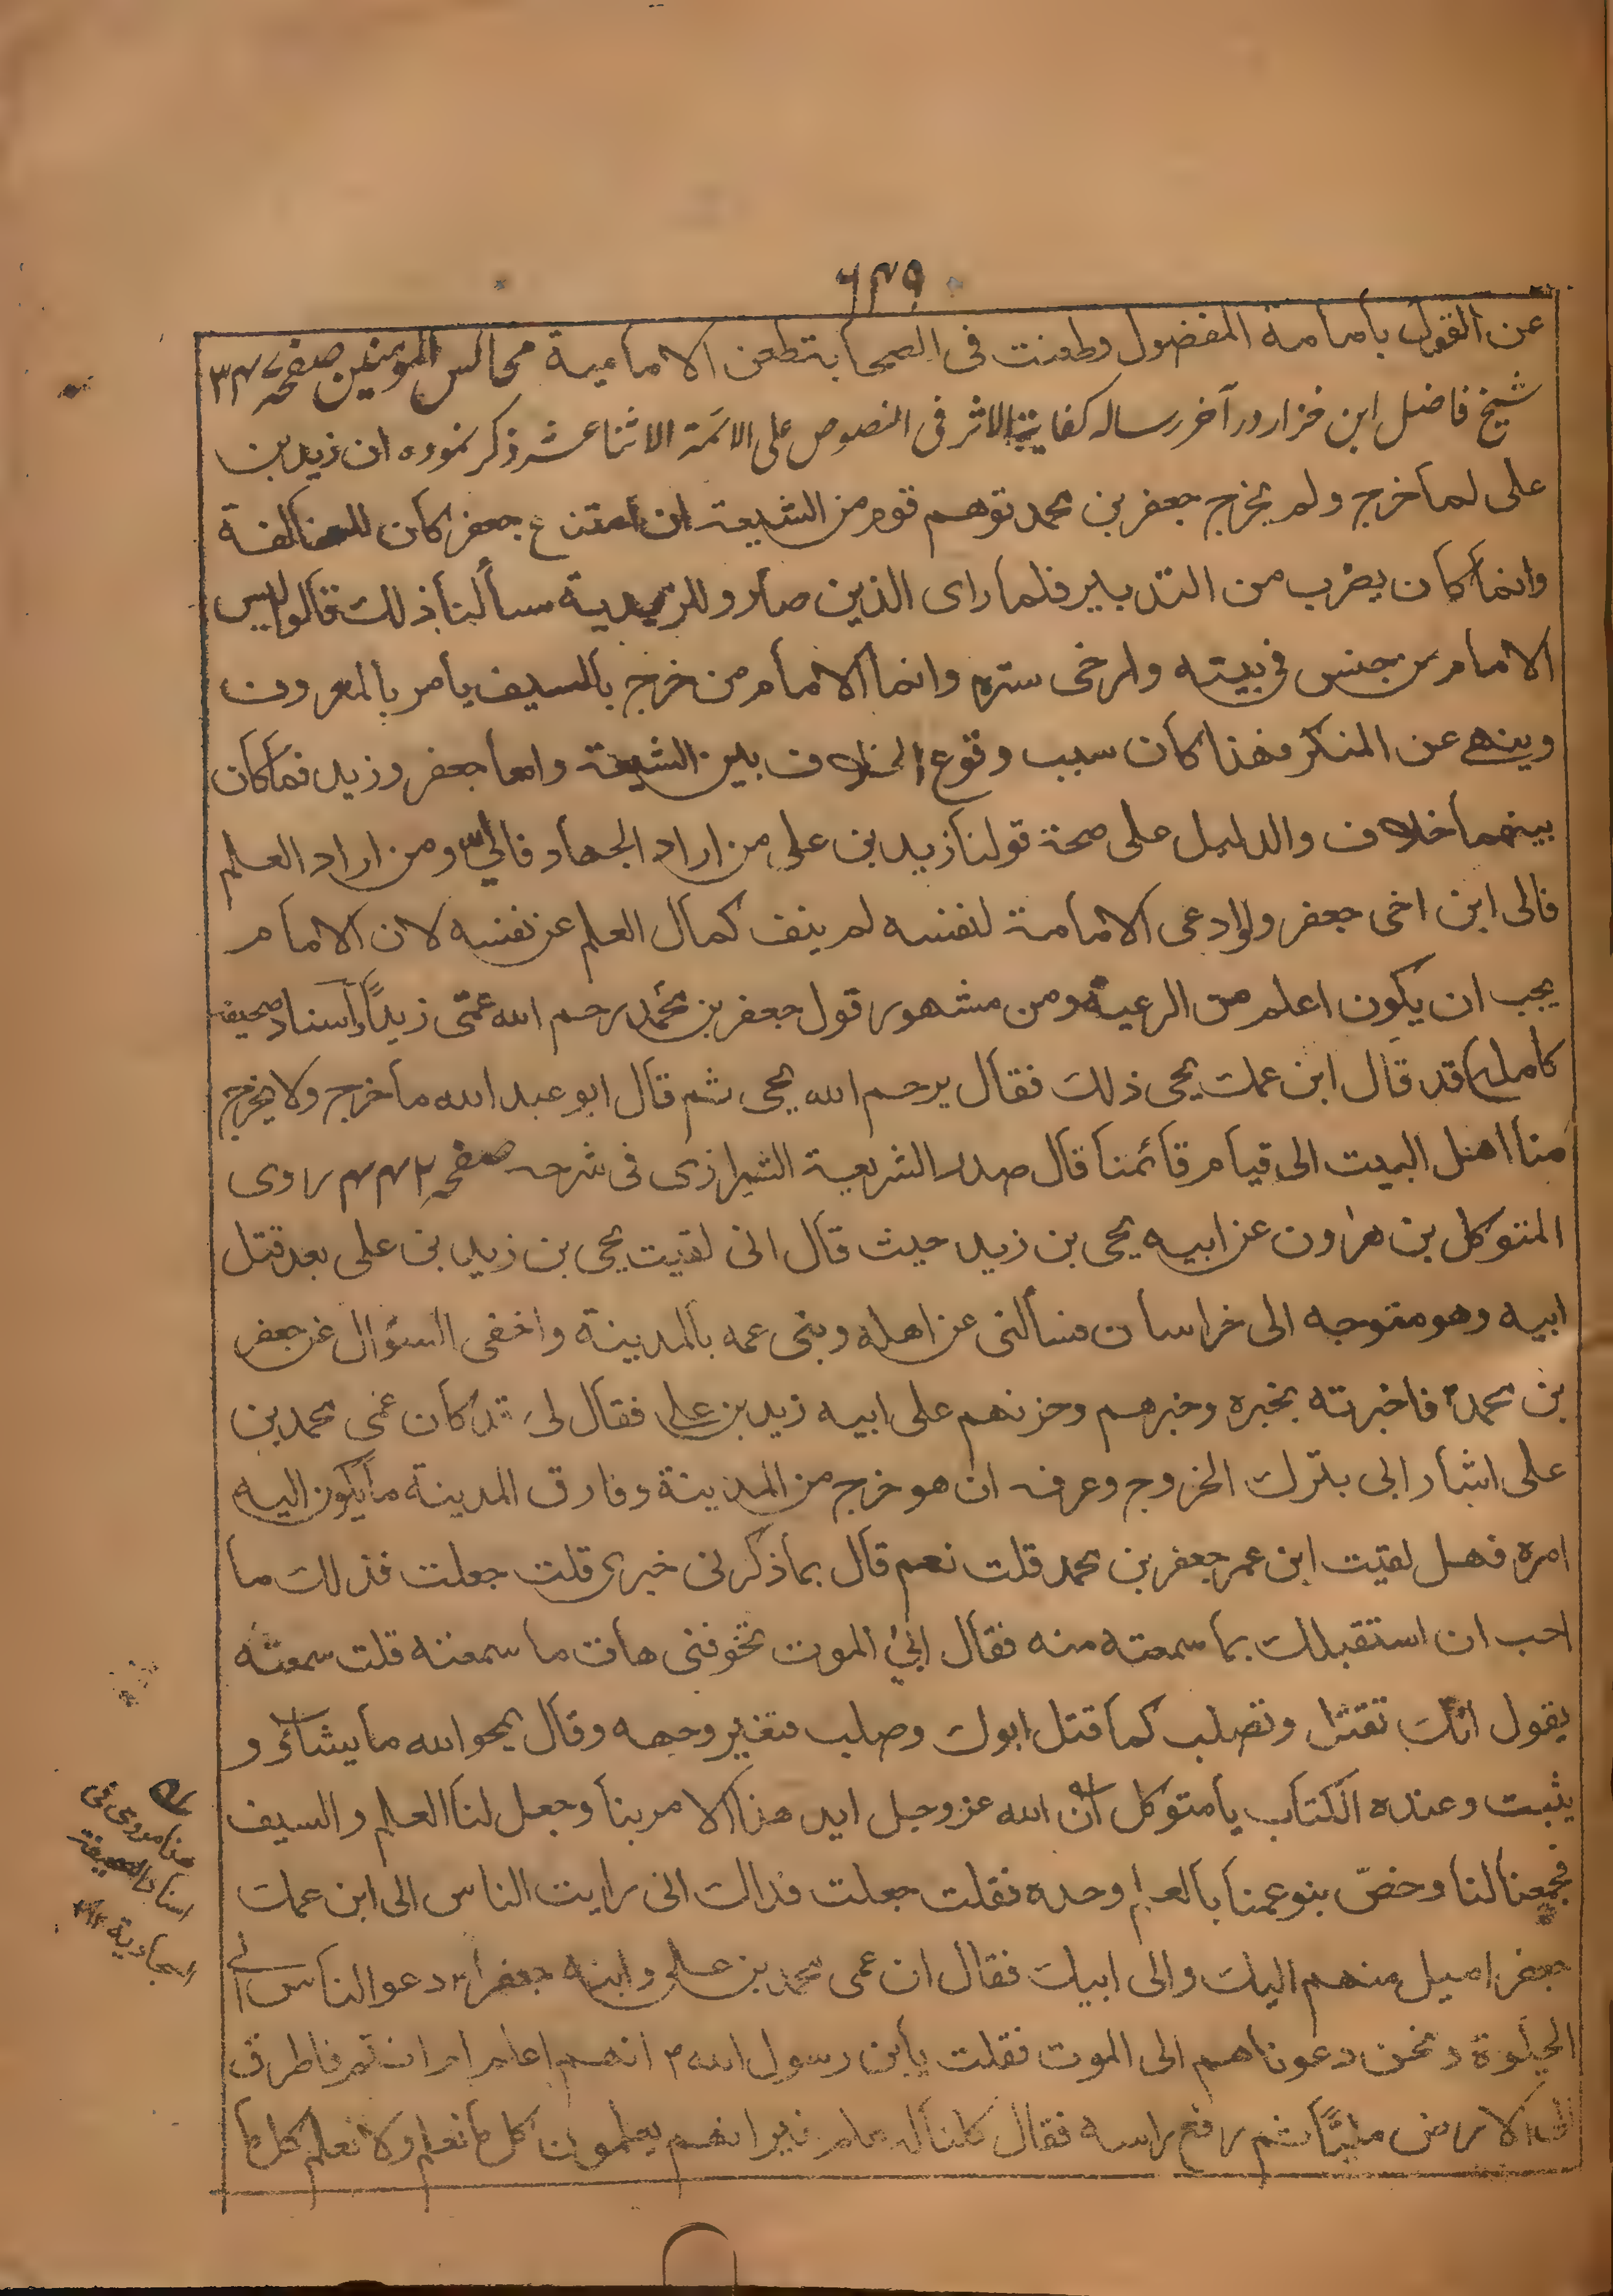 ۶۴۹
عن القول بأمامة المفضول وطعنت فى الصحابة طعن الامامية مجالس المؤمنين صفحه ۳۴۷
شيخ فاضل ابن خزار در آخر رساله كفاية الاثر فى النصوص على الائمة الاثنا عشر ذكر نموده ان زيد بن
على لما خرج ولم يخرج جعفر بن محمد توهم قوم من الشيعة ان امتناع جعفر كان للمخالفة
وانما كان بضرب من التدبير فلما راى الذين صاروا للزيدية سألنا ذلك قالوا ليس
الامام من جلس فى بيته وارخى ستره وانما الامام من خرج بالسيف يأمر بالمعروف
وينهى عن المنكر فهذا كان سبب وقوع الخلاف بين الشيعة واما جعفر وزيد فما كان
بينهما خلاف والدليل على صحة قولنا زيد بن على من اراد الجهاد فالىّ ومن اراد العلم
فالى ابن اخى جعفر ولو ادعى الامامة لنفسه لم ينف كمال العلم عن نفسه لان الامام
يجب ان يكون اعلم من الرعية ومن مشهور قول جعفر بن محمد رحم الله عمّى زيداً واسناد صحيفه
كامله قد قال ابن عمك يحى ذلك فقال يرحم الله يحى ثم قال ابو عبد الله ما خرج ولا يخرج
منا اهل البيت الى قيام قائمنا قال صدر الشريعة الشيرازى فى شرحه صفحه ۴۴۲ روى
المتوكل بن هرون عن ابيه يحى بن زيد حيث قال انى لقيت يحى بن زيد بن على بعد قتل
ابيه وهو متوجه الى خراسان فسألنى عن اهله وبنى عمه بالمدينة واخفى السؤال عن جعفر
بن محمد فاخبرته بخبره وخبرهم وحزنهم على ابيه زيد بن على فقال لى قد كان عمى محمد بن
على اشار ابى بترك الخروج وعرفه ان هو خرج من المدينة وفارق المدينة ما يكون اليه
امره فهل لقيت ابن عمى جعفر بن محمد قلت نعم قال بما ذكرنى خبرى قلت جعلت فذلك ما
احب ان استقبلك بما سمعته منه فقال ابى الموت تخوفنى هات ما سمعته قلت سمعته
يقول انك تقتل وتصلب كما قتل ابوك وصلب فتغير وجهه وقال يمحو الله ما يشاء و
يثبت وعنده الكتاب يا متوكل ان الله عز وجل ايد هذا الامر بنا وجعل لنا العلم والسيف
فجمعنا لنا وخصّ بنو عمنا بالعلم وحده فقلت جعلت فداك انى رايت الناس الى ابن عمك
جعفر اميل منهم اليك والى ابيك فقال ان عمى محمد بن على وابنه جعفرا دعوا الناس الى
الحيوة ونحن دعوناهم الى الموت فقلت يابن رسول الله انهم اعلم ام انتم فاطرق
الى الارض مليّا ثم رفع راسه فقال كلنا له علم غير انهم يعلمون كل ما نعلم ولا نعلم كل ما
هذا مروى فى
اسناد الصحيفة
السجادية